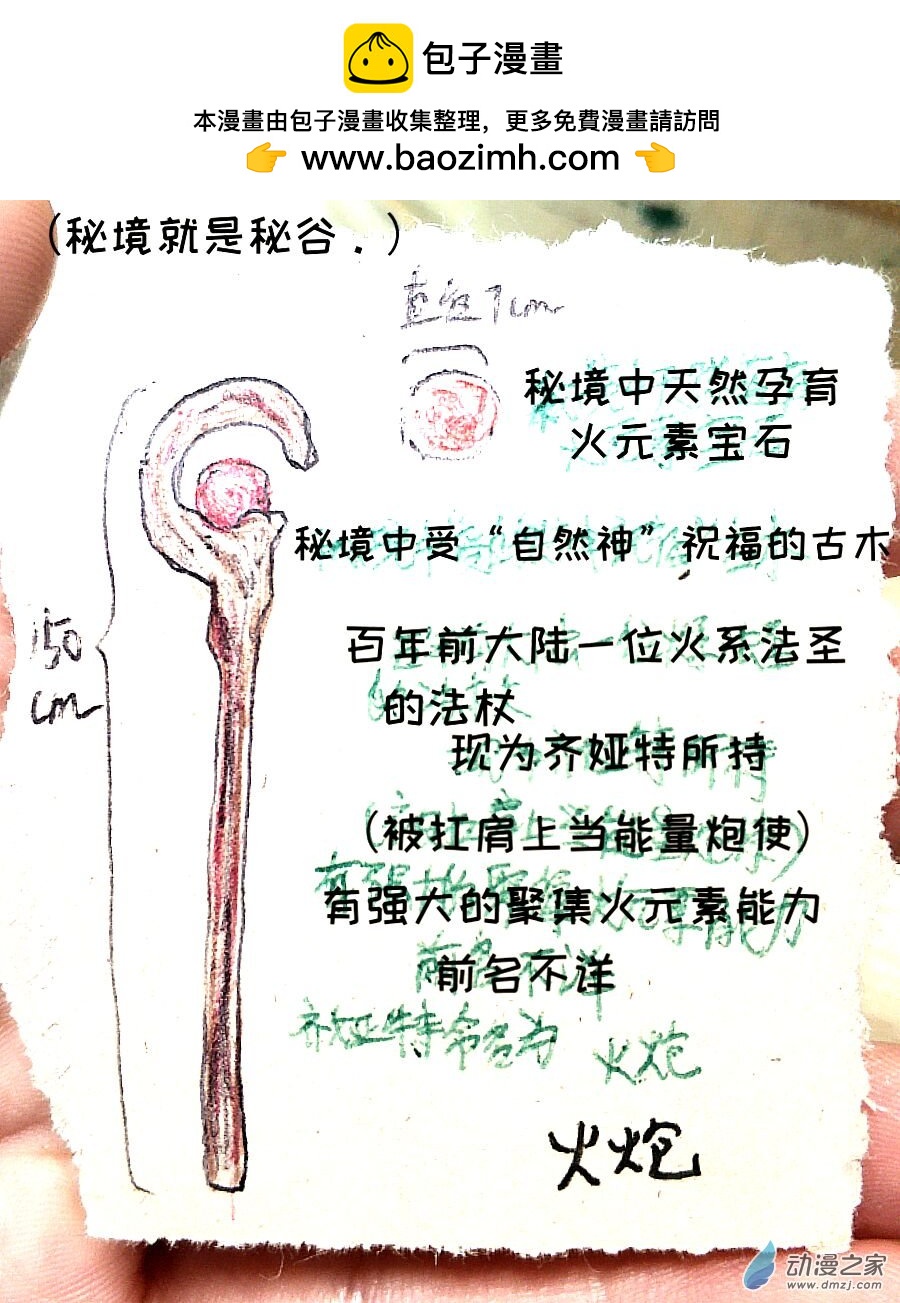 包子漫畫
本漫畫由包子漫畫收集整理，更多免費漫畫請訪問
👉 www.baozimh.com 👈
（秘境就是秘谷．）
直径7cm
秘境中天然孕育
火元素宝石
秘境中受“自然神”祝福的古木
150
cm
百年前大陆一位火系法圣
的法杖
现为齐娅特所持
（被扛肩上当能量炮使）
有强大的聚集火元素能力
前名不洋
齐娅特命名为
火炮
火炮
动漫之家
www.dmzj.com